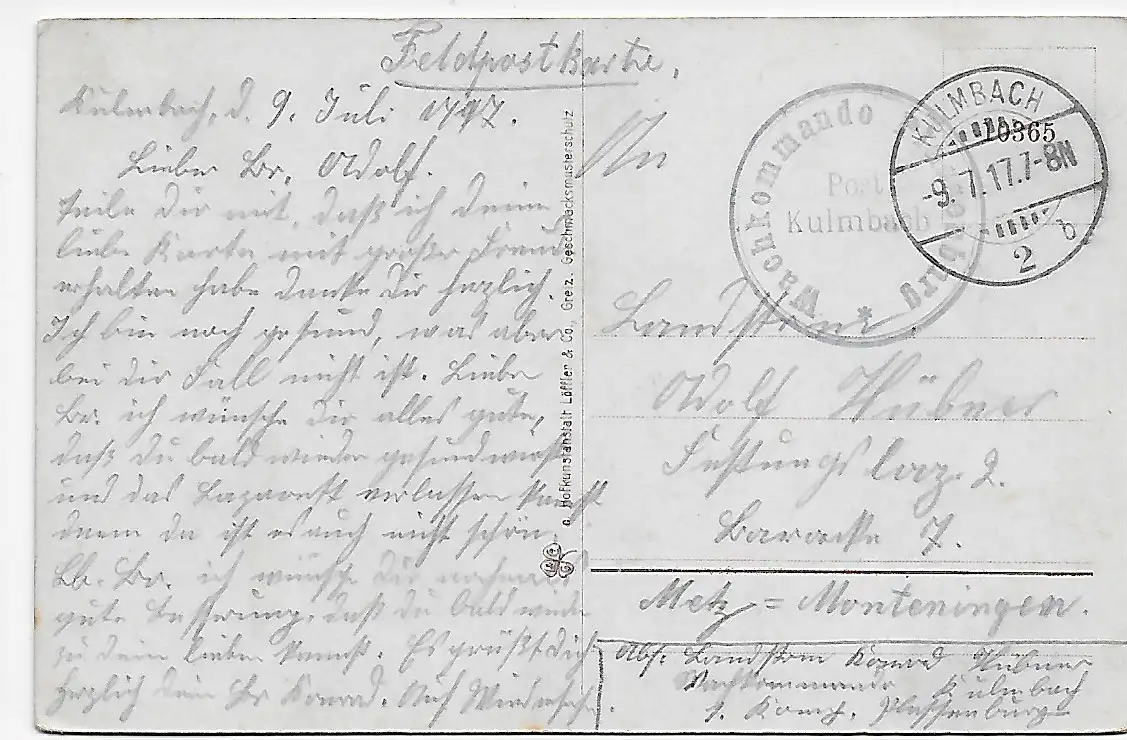 Feldpostkarte.
Kulmbach, d. 9. Juli 1917.
Lieber Br. Adolf.
Teile Dir mit, daß ich Deine
liebe Karte mit großer Freude
erhalten habe danke Dir herzlich.
Ich bin noch gesund, was aber
bei Dir Fall nicht ist. Lieber
Br. ich wünsche Dir alles gute,
daß Du bald wieder gesund wirst
und das Lazarett verlassen kannst
denn da ist es auch nicht schön.
Lb. Br. ich wünsche Dir nochmals
gute Besserung, daß du bald wieder
zu dein lieben kannst. Es grüßt Dich
herzlich Dein Br Konrad. Auf Wiedersehn.
Hofkunstanstalt Löffler & Co., Greiz. Geschmacksmusterschutz
An
Wachkommando Plassenburg *
Post
Kulmbach
KULMBACH
10365
-9.7.17.7-8N
2 b
Landstrm.
Adolf Hübner
Festungslaz. 2.
Baracke 7.
Metz = Monteningen.
Abs. Landstrm Konrad Hübner
Wachkommando Kulmbach
1. Komp. Plassenburg